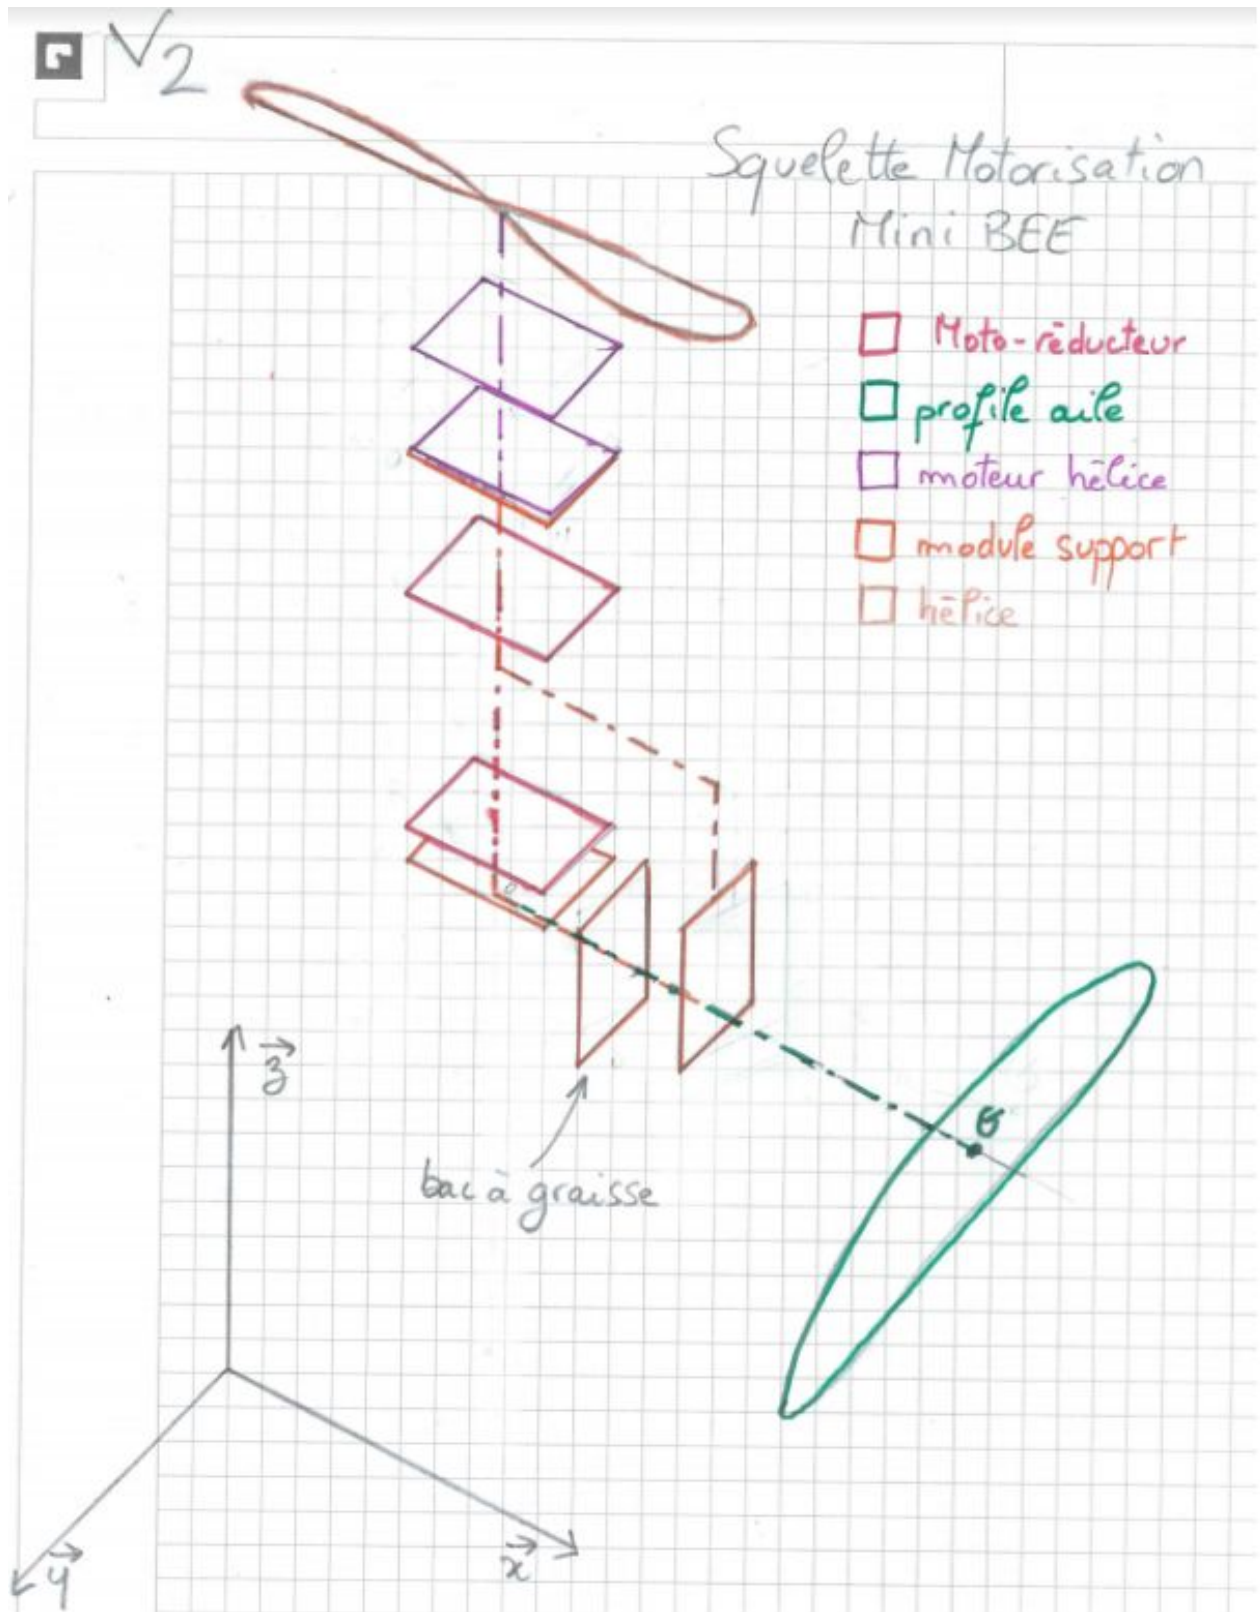 V2
Squelette Motorisation
Mini BEE
Moto-réducteur
profile aile
moteur hélice
module support
hélice
z
bac à graisse
x
y